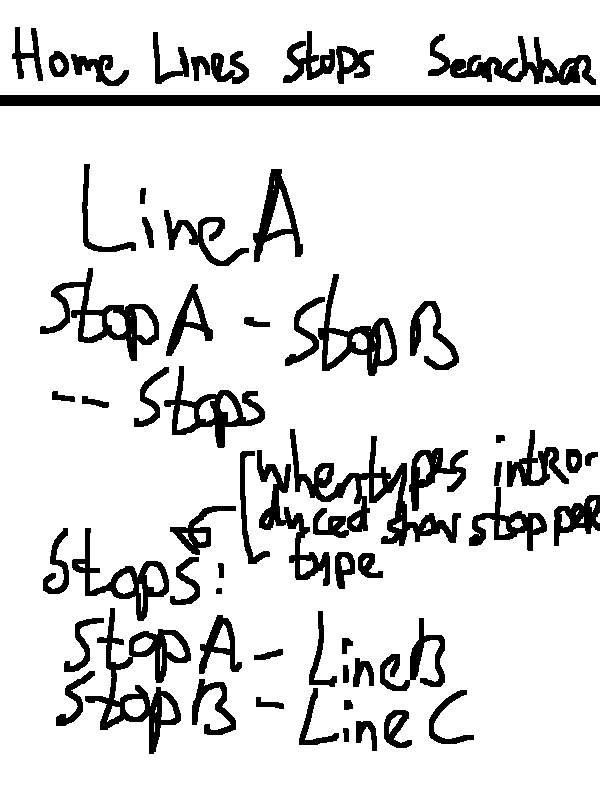 Home Lines Stops Searchbar
Line A
Stop A - Stop B
-- Stops
when types intro-
duced show stop per
type
Stops:
Stop A - Line B
Stop B - Line C